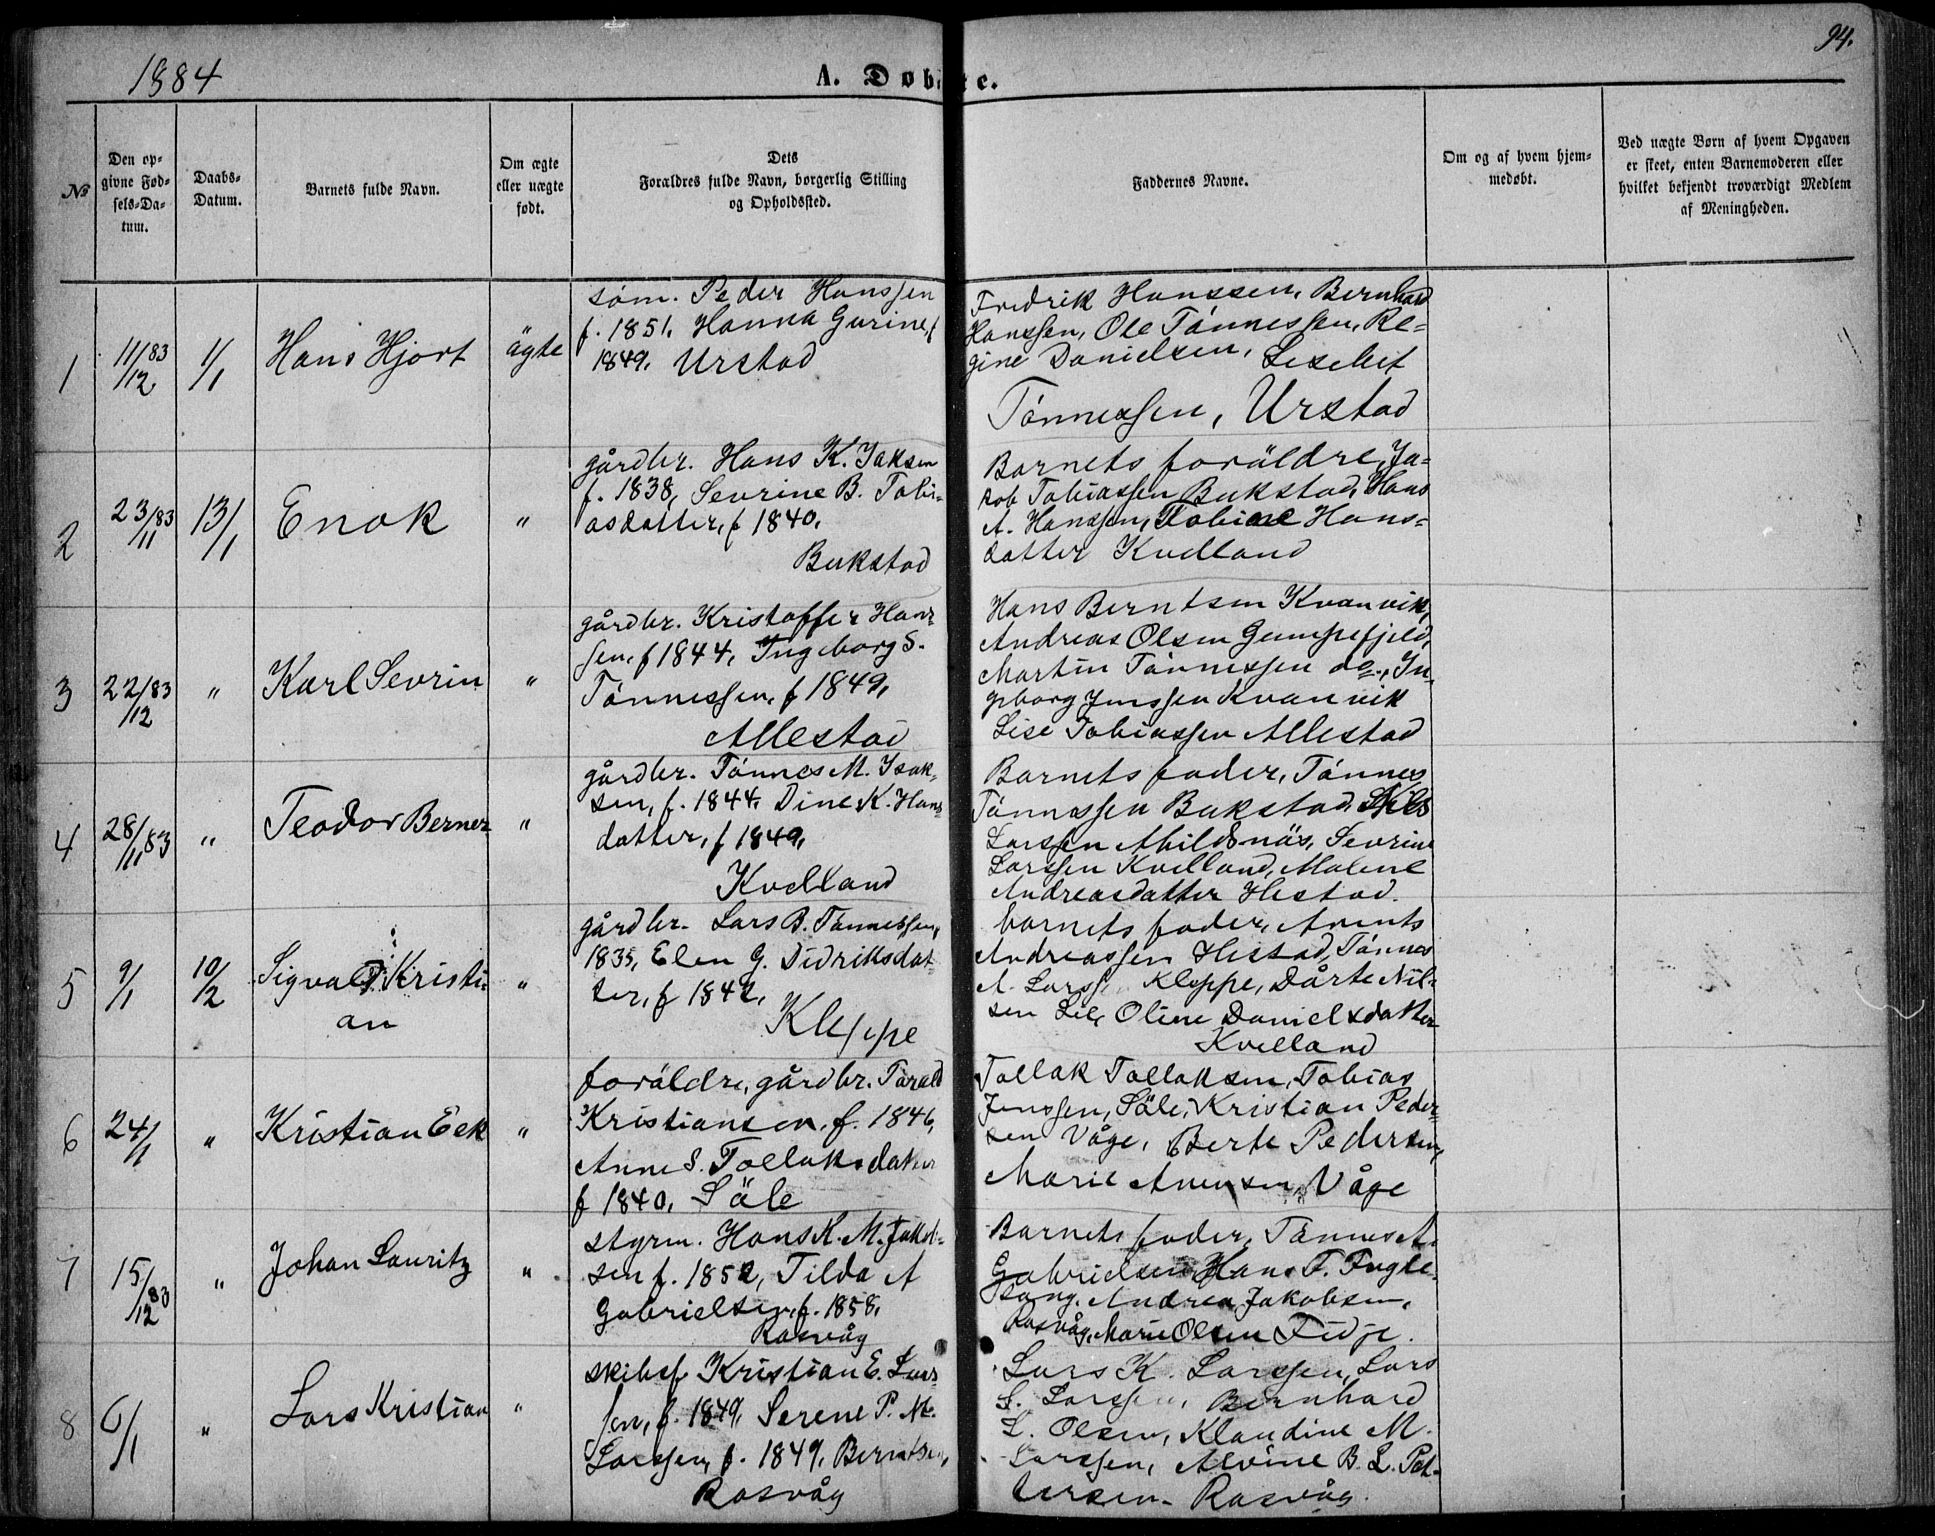 1884
A. Døbte.
94.
№
Den op-
givne Fød-
sels-Da-
tum.
Daabs-
Datum.
Barnets fulde Navn.
Om ægte
eller uægte
født.
Dets
Forældres fulde Navn, borgerlig Stilling
og Opholdssted.
Faddernes Navne.
Om og af hvem hjem-
medøbt.
Ved uægte Børn af hvem Opgaven
er skeet, enten Barnemoderen eller
hvilket bekjendt troværdigt Medlem
af Meningheden.
1
11/12 83
1/1
Hans Hjort
ägte
søm. Peder Hanssen
f. 1851, Hanna Gurine, f
1849, Urstad
Fredrik Hanssen, Bernhard
Hanssen, Ole Tönnessen, Re-
gine Danielsen, Lisebet
Tönnessen, Urstad
2
23/11 83
13/1
Enok
"
gårdbr. Hans K. Isaksen
f. 1838, Sevrine B. Tobi-
asdatter, f 1840,
Bukstad
Barnets foräldre, Ja-
kob Tobiassen Bukstad, Hans
A. Hanssen, Tobine Hans-
datter Kvelland
3
22/12 83
"
Karl Sevrin
"
gårdbr. Kristoffer Hans-
sen, f 1844, Ingeborg S.
Tönnessen, f 1849,
Allestad
Hans Berntsen Kvanvik,
Andreas Olsen Gumpefjeld,
Martin Tönnessen do., In-
geborg Jenssen Kvanvik
Lise Tobiassen Allestad
4
28/11 83
"
Teodor Berner
"
gårdbr. Tönnes M. Isak-
sen, f. 1844, Dine K. Hans
datter, f 1849,
Kvelland
Barnets fader, Tönnes
Tönnessen Bukstad, Nils
Larssen Abildsnäs, Sevrine
Larssen Kvelland, Malene
Andreasdatter Hestad.
5
9/1
10/2
Sigvald Kristi-
an
"
gårdbr. Lars B. Tönnessen,
1835, Elen G. Didriksdat-
ter, f 1842,
Kleppe
barnets fader, Arents
Andreassen Hestad, Tönnes
A. Larssen Kleppe, Dårte Nil-
sen Lile, Oline Danielsdatter
Kvelland
6
24/1
"
Kristian Eek
"
foräldre, gårdbr. Tarald
Kristiansen, f. 1846,
Anne S. Tollaksdatter
f 1840, Säle
Tollak Tollaksen, Tobias
Jenssen, Säle, Kristian Peder-
sen Våge, Berte Pedersen,
Marie Arensen, Våge
7
15/12 83
"
Johan Lauritz
"
styrm. Hans K. M. Jakob-
sen f. 1852, Tilda A
Gabrielsen, f. 1858,
Rasvåg
Barnets fader, Tönnes A.
Gabrielsen, Hans F. Fugle-
sang, Andrea Jakobsen,
Rasvåg, Marie Olsen Fidje.
8
6/1
"
Lars Kristian
"
skibsf Kristian E. Lars-
sen, f. 1849, Serene P. M.
Larssen, f. 1849, Berntsen,
Rasvåg
Lars K. Larssen, Lars
S. Larssen, Bernhard
L. Olsen, Klaudine M.
Larssen, Alvine B. L. Pet-
tersen. Rasvåg.